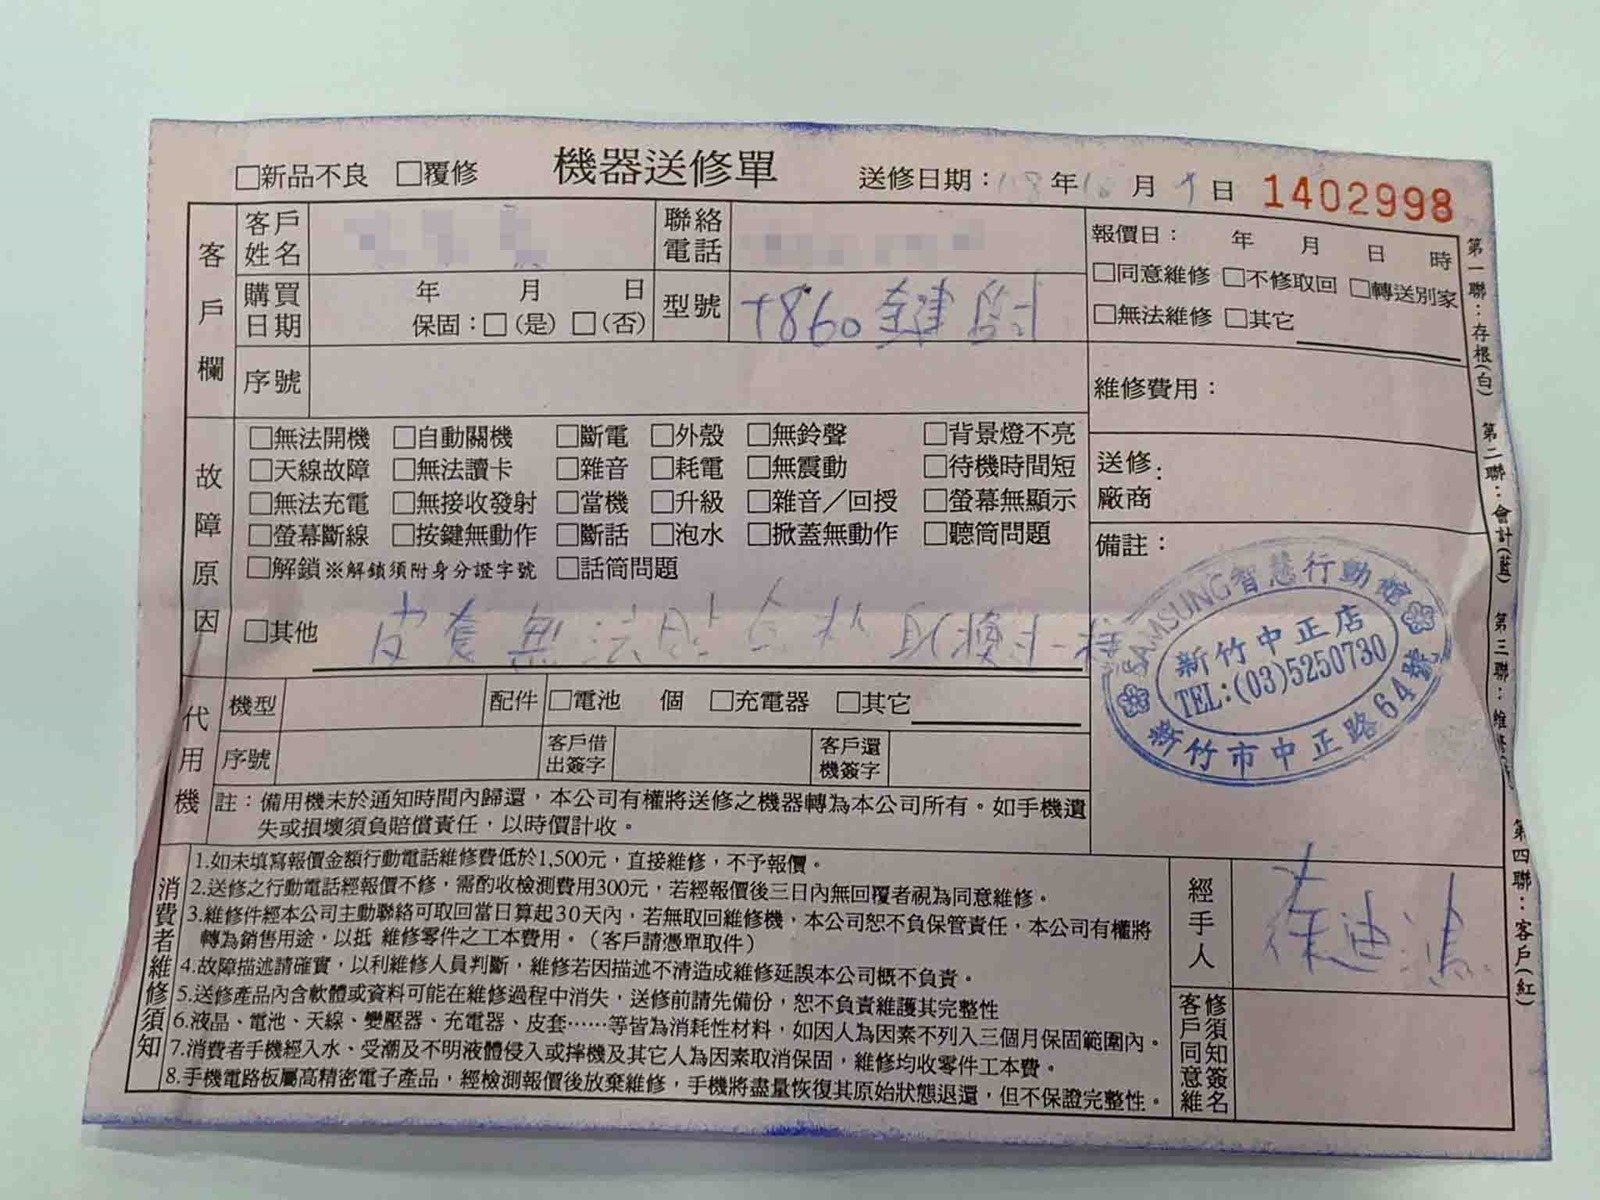 □新品不良 □覆修 機器送修單 送修日期：108年10月 日 1402998
客戶欄
客戶姓名
聯絡電話
購買日期 年 月 日
保固：□(是) □(否)
型號 T860鍵盤
序號
報價日： 年 月 日 時
□同意維修 □不修取回 □轉送別家
□無法維修 □其它
維修費用：
送修廠商：
備註：
故障原因
□無法開機 □自動關機 □斷電 □外殼 □無鈴聲 □背景燈不亮
□天線故障 □無法讀卡 □雜音 □耗電 □無震動 □待機時間短
□無法充電 □無接收發射 □當機 □升級 □雜音／回授 □螢幕無顯示
□螢幕斷線 □按鍵無動作 □斷話 □泡水 □掀蓋無動作 □聽筒問題
□解鎖※解鎖須附身分證字號 □話筒問題
□其他 皮套無法貼合
SAMSUNG智慧行動館
新竹中正店
TEL:(03)5250730
新竹市中正路64號
代用機
機型 配件 □電池 個 □充電器 □其它
序號 客戶借出簽字 客戶還機簽字
註：備用機未於通知時間內歸還，本公司有權將送修之機器轉為本公司所有。如手機遺
失或損壞須負賠償責任，以時價計收。
消費者維修須知
1.如未填寫報價金額行動電話維修費低於1,500元，直接維修，不予報價。
2.送修之行動電話經報價不修，需酌收檢測費用300元，若經報價後三日內無回覆者視為同意維修。
3.維修件經本公司主動聯絡可取回當日算起30天內，若無取回維修機，本公司恕不負保管責任，本公司有權將
轉為銷售用途，以抵 維修零件之工本費用。（客戶請憑單取件）
4.故障描述請確實，以利維修人員判斷，維修若因描述不清造成維修延誤本公司概不負責。
5.送修產品內含軟體或資料可能在維修過程中消失，送修前請先備份，恕不負責維護其完整性
6.液晶、電池、天線、變壓器、充電器、皮套⋯⋯等皆為消耗性材料，如因人為因素不列入三個月保固範圍內。
7.消費者手機經入水、受潮及不明液體侵入或摔機及其它人為因素取消保固，維修均收零件工本費。
8.手機電路板屬高精密電子產品，經檢測報價後放棄維修，手機將盡量恢復其原始狀態退還，但不保證完整性。
經手人
客戶同意維修須知簽名
第一聯：存根(白)
第二聯：會計(藍)
第三聯：維
第四聯：客戶(紅)